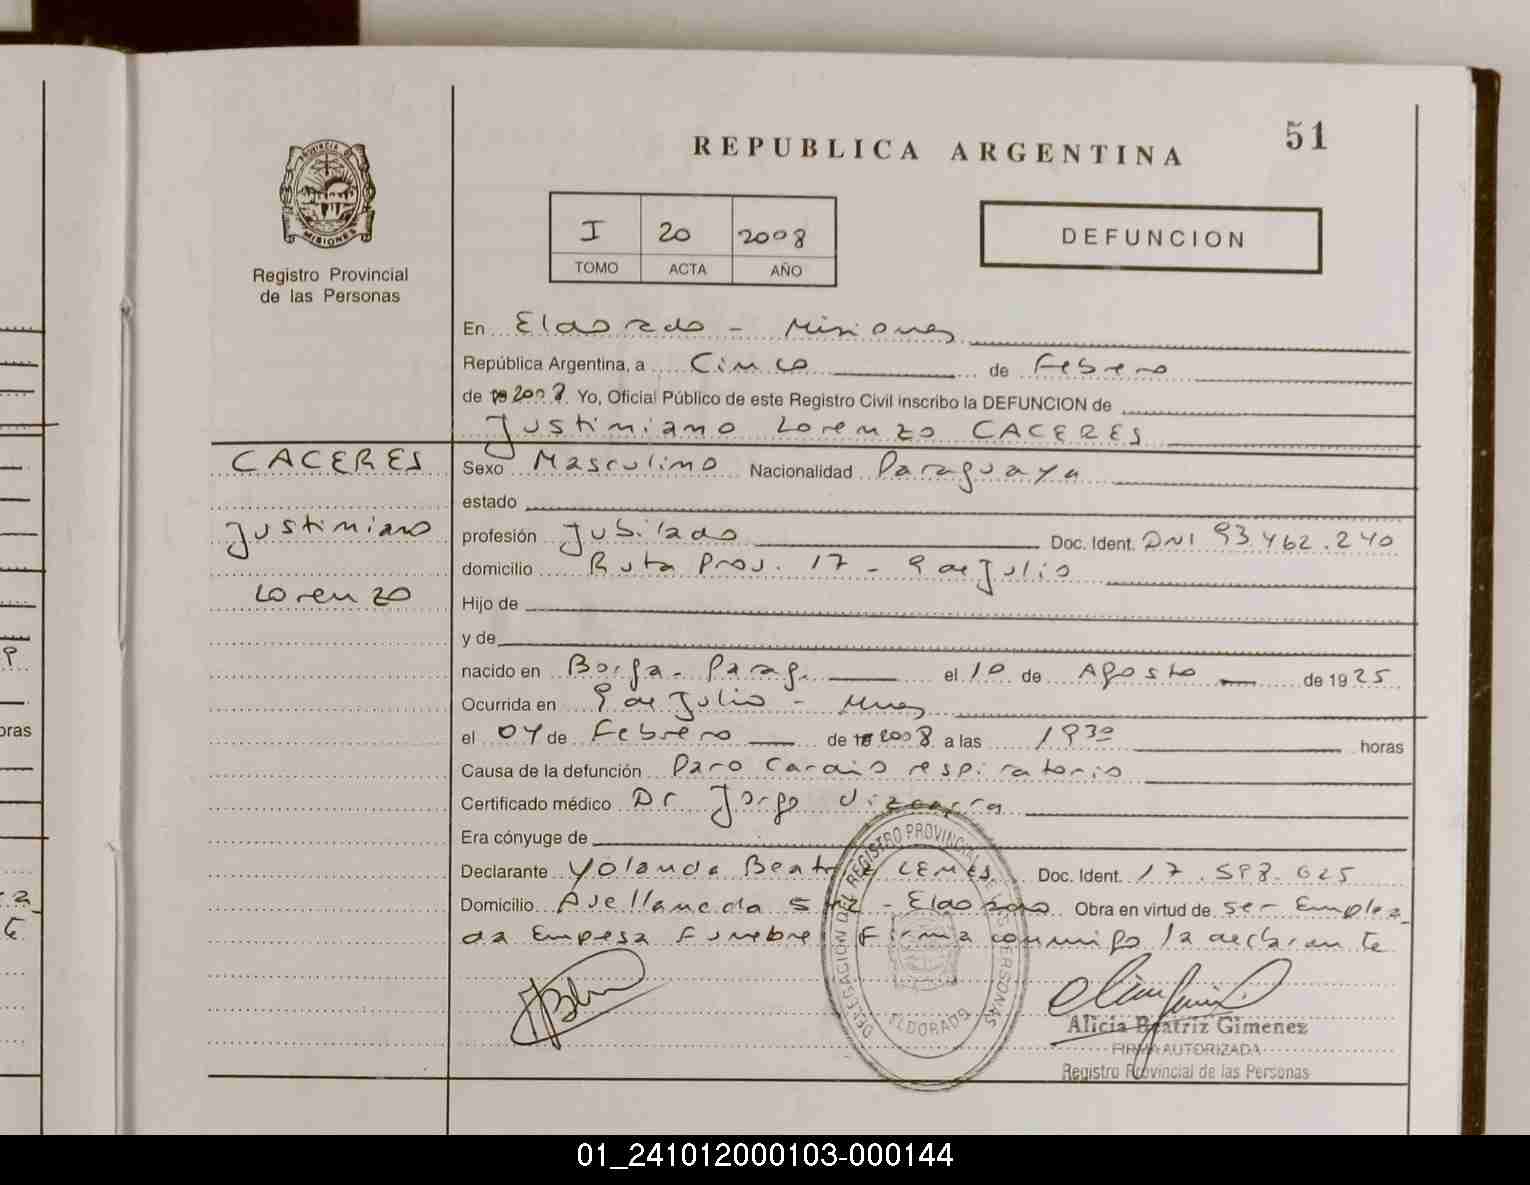 51
REPUBLICA ARGENTINA
PROVINCIA DE
MISIONES
Registro Provincial
de las Personas
I 20 2008
TOMO ACTA AÑO
DEFUNCION
En Eldorado - Misiones
República Argentina, a Cinco de Febrero
de 2008. Yo, Oficial Público de este Registro Civil inscribo la DEFUNCION de
Justiniano Lorenzo CACERES
CACERES
Justiniano
Lorenzo
Sexo Masculino Nacionalidad Paraguaya
estado
profesión Jubilado Doc. Ident. DNI 93.462.240
domicilio Ruta Prov. 17 - 9 de Julio
Hijo de
y de
nacido en Borja - Parag. el 10 de Agosto de 1925
Ocurrida en 9 de Julio - Mnes
el 04 de Febrero de 2008 a las 19 30 horas
Causa de la defunción Paro Cardio respiratorio
Certificado médico Dr Jorge Vizcarra
Era cónyuge de
Declarante Yolanda Beatriz LEMES Doc. Ident. 17.598.625
Domicilio Avellaneda - Eldorado Obra en virtud de ser Emplea
da Empesa Funebre Firma conmigo la declarante
DELEGACIÓN DEL REGISTRO PROVINCIAL DE LAS PERSONAS
ELDORADO
Alicia Beatriz Gimenez
FIRMA AUTORIZADA
Registro Provincial de las Personas
oras
01_241012000103-000144